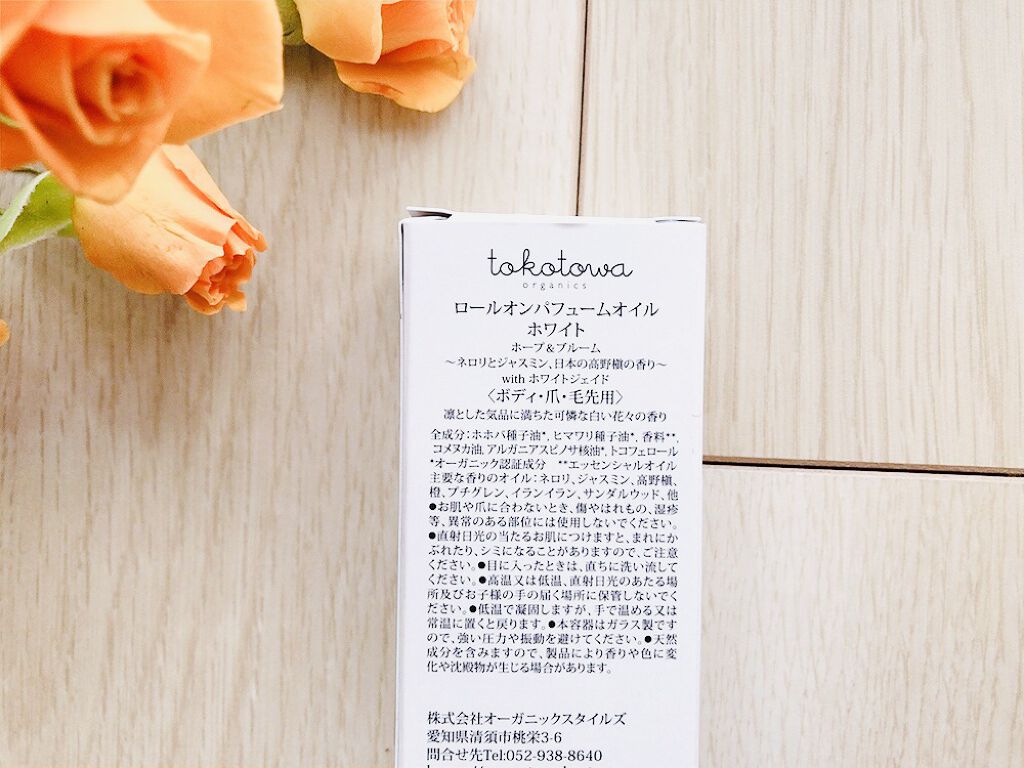 tokotowa
organics
ロールオンパフュームオイル
ホワイト
ホープ＆ブルーム
～ネロリとジャスミン、日本の高野槇の香り～
with ホワイトジェイド
〈ボディ・爪・毛先用〉
凛とした気品に満ちた可憐な白い花々の香り
全成分：ホホバ種子油*, ヒマワリ種子油*, 香料**,
コメヌカ油, アルガニアスピノサ核油*, トコフェロール
*オーガニック認証成分　**エッセンシャルオイル
主要な香りのオイル：ネロリ、ジャスミン、高野槇、
橙、プチグレン、イランイラン、サンダルウッド、他
●お肌や爪に合わないとき、傷やはれもの、湿疹
等、異常のある部位には使用しないでください。
●直射日光の当たるお肌につけますと、まれにか
ぶれたり、シミになることがありますので、ご注意
ください。●目に入ったときは、直ちに洗い流して
ください。●高温又は低温、直射日光のあたる場
所及びお子様の手の届く場所に保管しないでく
ださい。●低温で凝固しますが、手で温める又は
常温に置くと戻ります。●本容器はガラス製です
ので、強い圧力や振動を避けてください。●天然
成分を含みますので、製品により香りや色に変
化や沈殿物が生じる場合があります。
株式会社オーガニックスタイルズ
愛知県清須市桃栄3-6
問合せ先Tel:052-938-8640